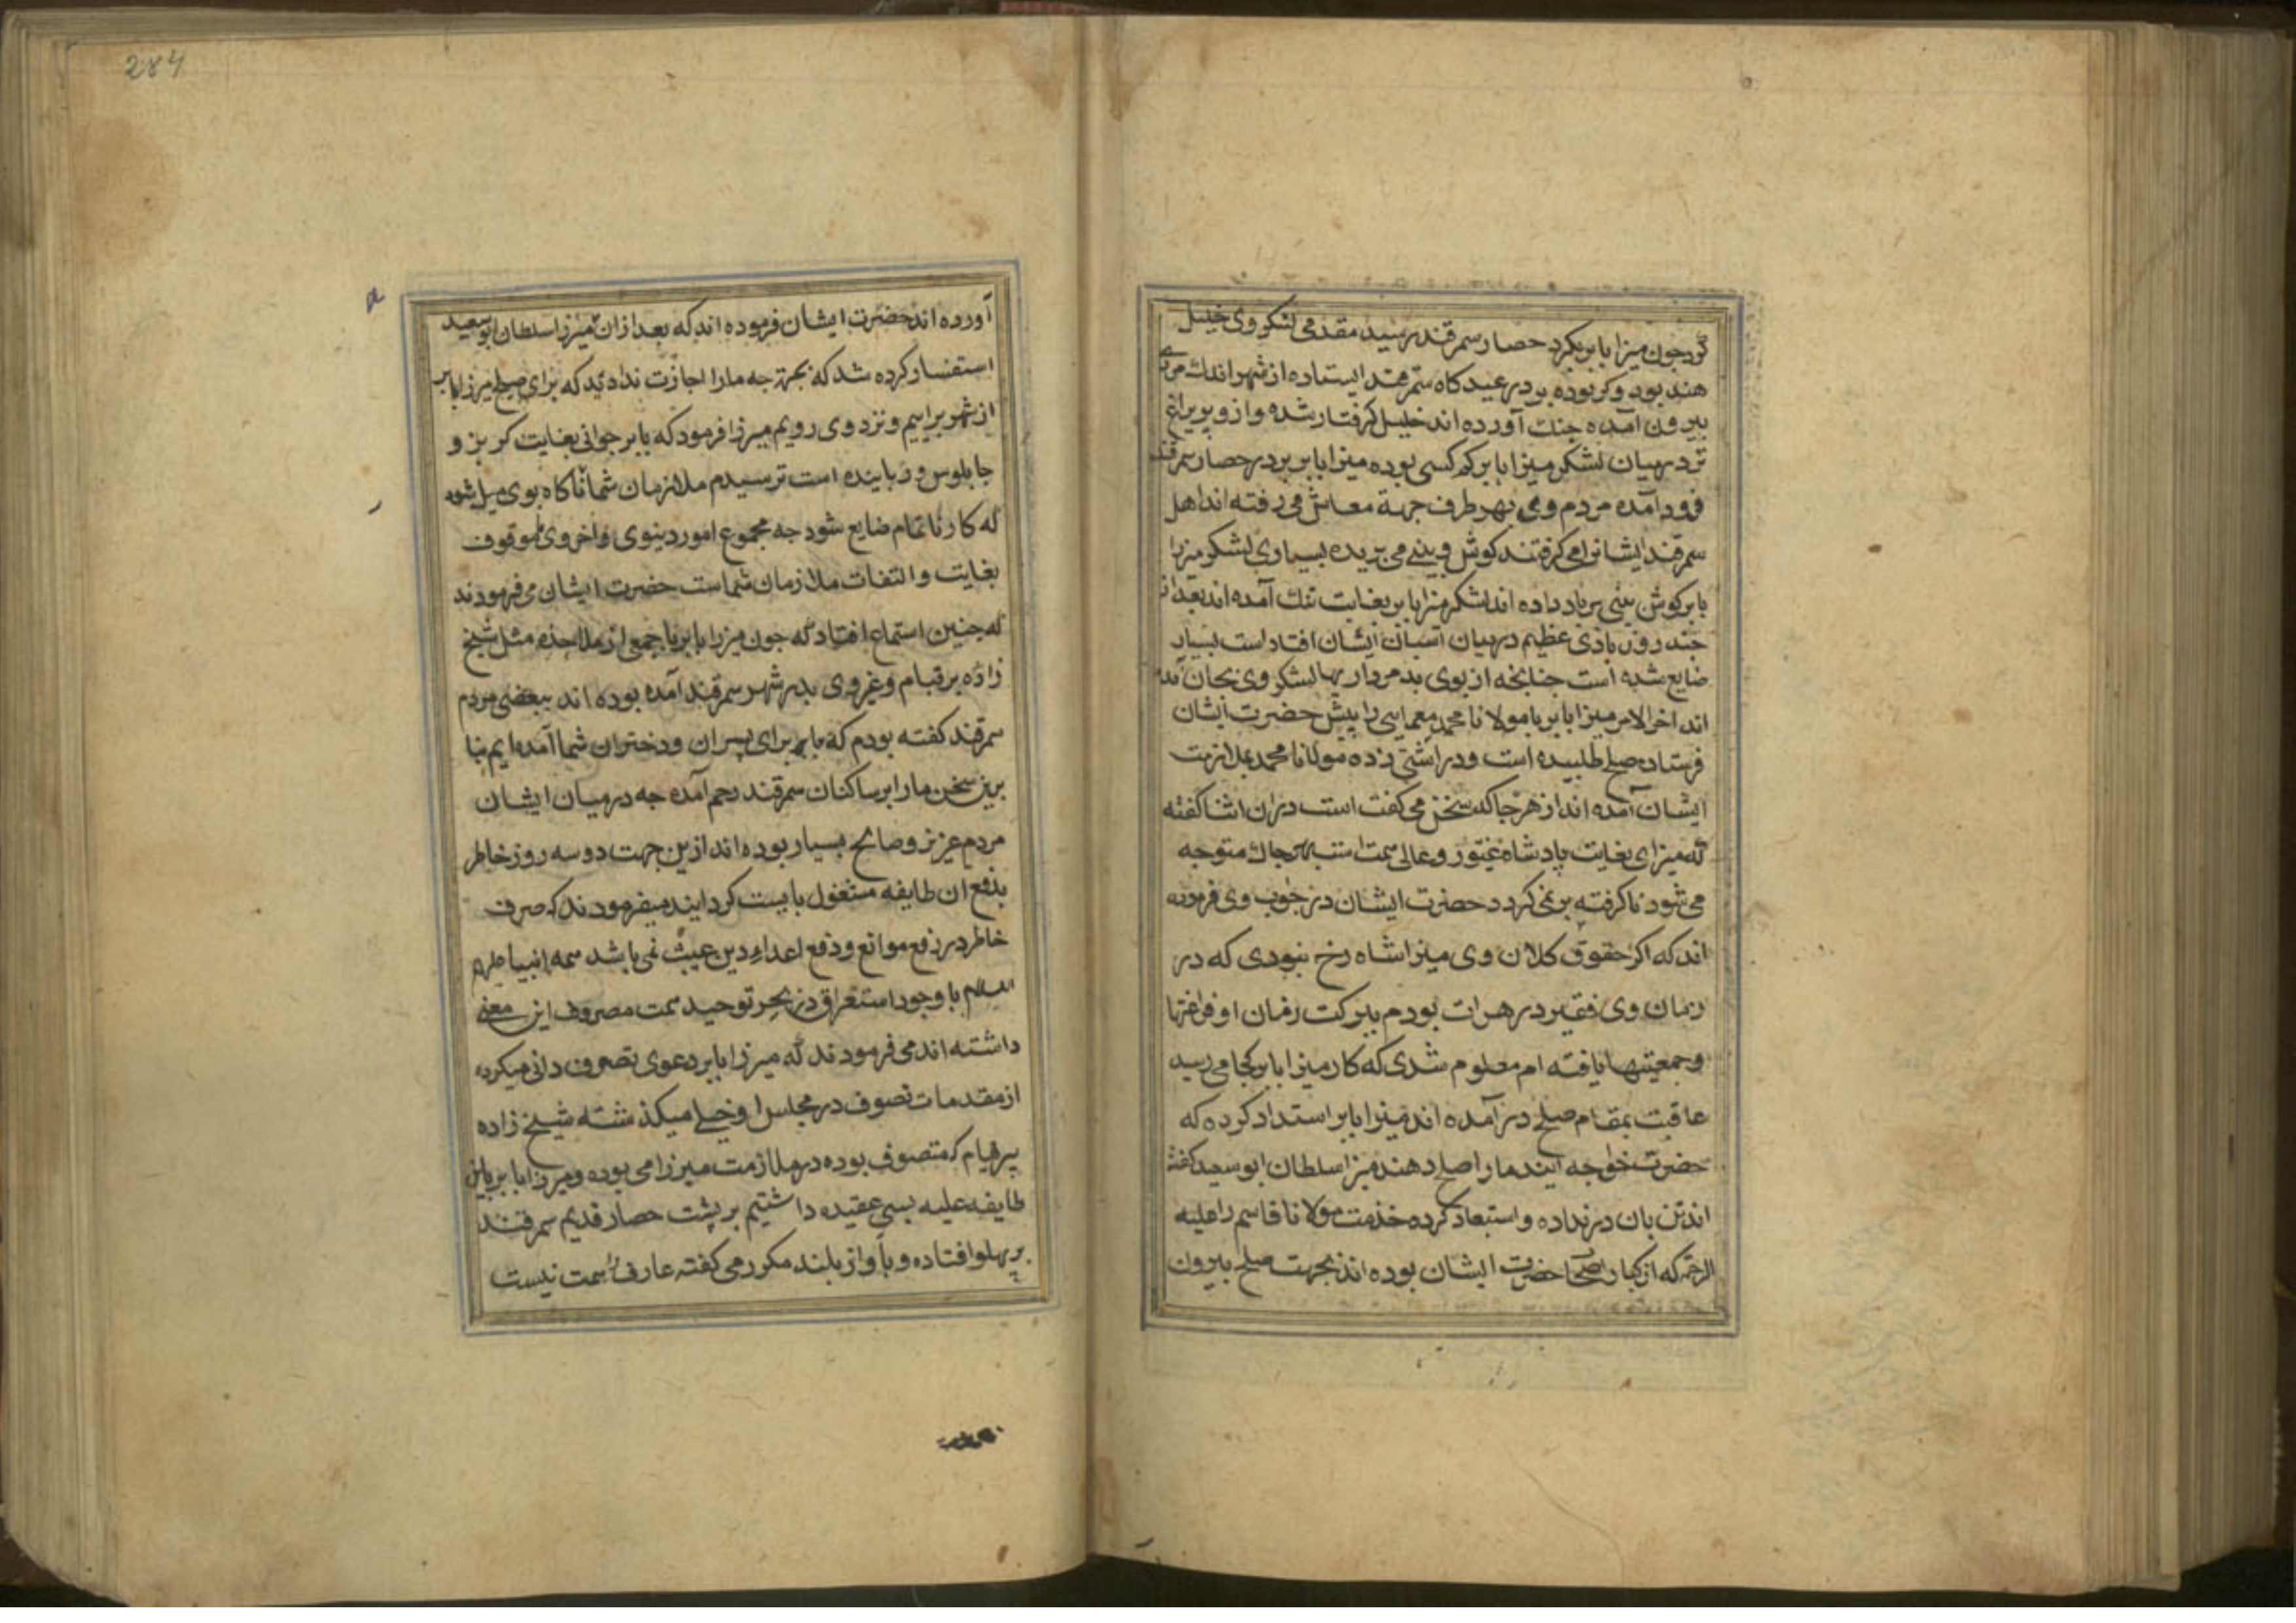 کرد چون میرزا بابر بکرد حصار سمرقند رسید مقدمی لشکر وی خلیل
هند بود وکر بوده بر در عیدکاه سمرقند ایستاده از شهر اندك مردم
بیرون آمده جنك آورده اند خلیل کرفتار شده و ازو پریراغ
تر درمیان لشکر میرزا بابر کم کسی بوده میرزا بابر بر در حصار سمرقند
فرود آمده مردم وی بهر طرف جهة معاش می رفته اند اهل
سمرقند ایشانرا می کرفتند کوش و بینی می بریده بسیاری لشکر میرزا
بابر کوش بینی برباد داده اند لشکر میرزا بابر بغایت تنك آمده اند بعد از
چند روز بادی عظیم درمیان اسبان ایشان افتاد است بسیار
ضایع شده است چنانچه از بوی بد مردار یها لشکر وی بجان آمده
اند اخر الامر میرزا بابر یا مولانا محمد معمایی را پیش حضرت ایشان
فرستاده صلح طلبیده است و در آشتی زده مولانا محمد بملازمت
ایشان آمده اند از هر جا که سخن می کفت است دران اثنا کفته
که میرزای بغایت پادشاه غیور و عالی همت است بهر جاك متوجه
می شود نا کرفته بر نمی کردد حضرت ایشان در جواب وی فرموده
اند که اکر حقوق کلان وی میرزا شاه رخ نبودی که در
زمان وی فقیر در هرات بودم ببرکت زمان او فراغتها
و جمعیتها یافته ام معلوم شدی که کار میرزا بابر کجا می رسید
عاقبت بمقام صلح در آمده اند میرزا بابر استداد کرده که
حضرت خواجه ایند ما را صلح دهند میرزا سلطان ابو سعید کفته
اند تن بان در نداده و استبعاد کرده خدمت مولانا قاسم را علیه
الرحمة که از کبار اصحاب حضرت ایشان بوده اند بجهت صلح بیرون
284
آورده اند حضرت ایشان فرموده اند که بعد ازان میرزا سلطان ابو سعید
استفسار کرده شد که بجهة چه مارا اجازت ندادید که برای صلح میرزا بابر
از شهر براییم و نزد وی رویم میرزا فرمود که بابر جوانی بغایت کربز و
چابلوس و رباینده است ترسیدم ملازمان شما ناکاه بوی میل شود
که کار نا تمام ضایع شود چه مجموع امور دینوی و اخروی موقوف
بغایت و التفات ملازمان شماست حضرت ایشان می فرمودند
که چنین استماع افتاد که چون میرزا بابر با جمعی از ملاحده مثل شیخ
زاده برقیام و غیر وی بدر شهر سمرقند آمده بوده اند ببعضی مردم
سمرقند کفته بودم که بابر برای پسران و دختران شما آمده ایم بنا
برین سخن مارا بر ساکنان سمرقند رحم آمده چه درمیان ایشان
مردم عزیز و صالح بسیار بوده اند ازین جهت دو سه روز خاطر
بدفع ان طایفه مشغول بایست کردایند میفرمودند که صرف
خاطر در رفع موانع و دفع اعداء دین عیب نمی باشد همه انبیا علیهم
السلام با وجود استغراق در بحر توحید همت مصروف این معنی
داشته اند می فرمودند که میرزا بابر دعوی تصوف دانی میکرد
از مقدمات تصوف در مجلس او خیلی میکذشته شیخ زاده
پیرقیام که متصوف بوده در ملازمت میرزا می بوده و میرزا بابر باین
طایفه علیه بسی عقیده داشتیم بر پشت حصار قدیم سمرقند
بر پهلو افتاده و باواز بلند مکرر می کفته عارف را همت نیست